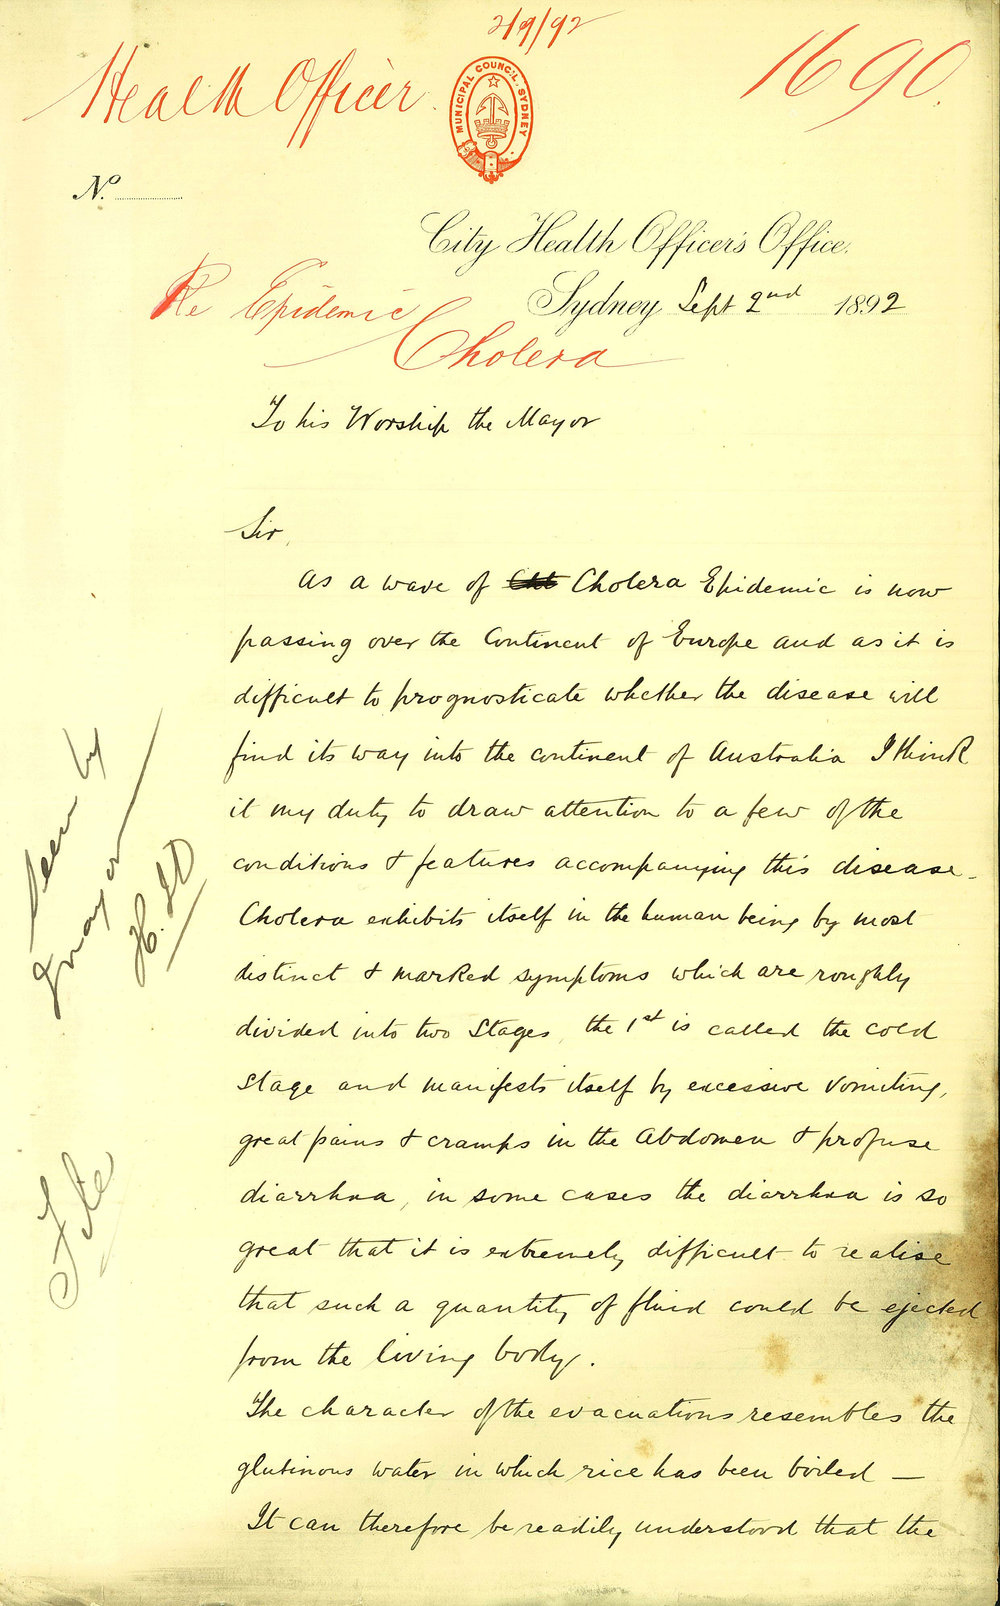 2/9/92
Health Officer.
1690.
MUNICIPAL COUNCIL. SYDNEY
No.
City Health Officer's Office.
Re Epidemic
Sydney Sept 2nd 1892
Cholera
To his Worship the Mayor
Sir,
As a wave of Cholera Epidemic is now
passing over the Continent of Europe and as it is
difficult to prognosticate whether the disease will
find its way into the continent of Australia I think
it my duty to draw attention to a few of the
conditions & features accompanying this disease -
Cholera exhibits itself in the human being by most
distinct & marked symptoms which are roughly
divided into two Stages, the 1st is called the cold
Stage and manifests itself by excessive Vomiting,
great pains & cramps in the Abdomen & profuse
diarrhœa, in some cases the diarrhœa is so
great that it is extremely difficult to realise
that such a quantity of fluid could be ejected
from the living body.
The character of the evacuations resembles the
glutinous water in which rice has been boiled —
It can therefore be readily understood that the
Seen by
Mayor
File